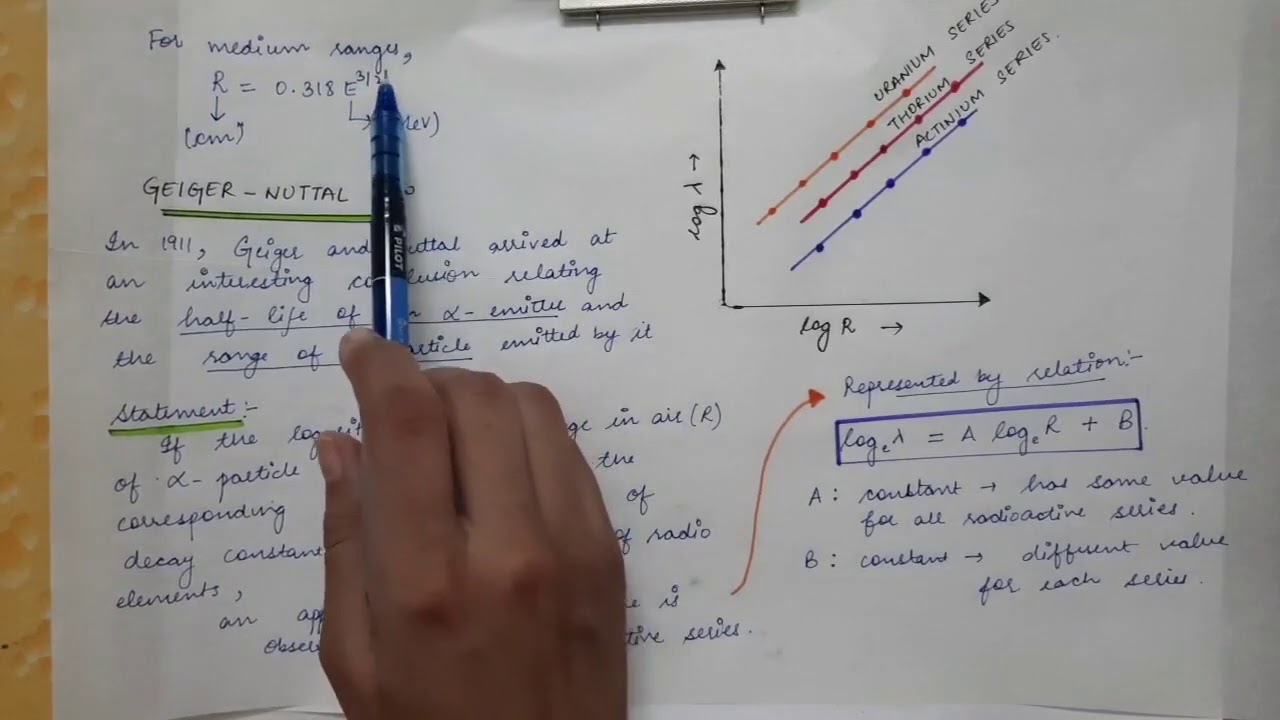 For medium ranges,
R = 0.318 E^3/2
(cm)
GEIGER - NUTTAL
In 1911, Geiger and arrived at
an interesting relating
the half-life of α- emitter and
the range of emitted by it
Statement:-
If the in air (R)
of α- particle the
corresponding of
decay constant of radio
elements,
an is
series.
PILOT
URANIUM SERIES
THORIUM SERIES
ACTINIUM SERIES.
log λ →
log R →
Represented by relation:-
logₑ λ = A logₑ R + B.
A : constant → has same value
for all radioactive series.
B : constant → different value
for each series.